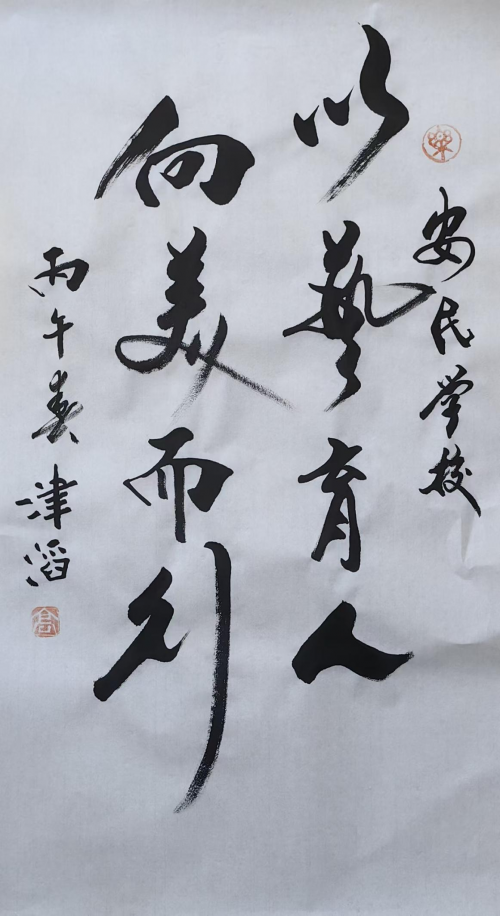 安民学校
以藝育人
向美而行
丙午春津滔